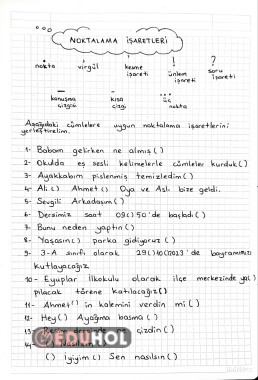 NOKTALAMA İŞARETLERİ
. , ' ! ?
nokta virgül kesme işareti ünlem işareti soru işareti
— - ...
konuşma çizgisi kısa çizgi üç nokta
Aşağıdaki cümlelere uygun noktalama işaretlerini
yerleştirelim.
1- Babam gelirken ne almış( )
2- Okulda eş sesli kelimelerle cümleler kurduk( )
3- Ayakkabım pislenmiş temizledim( )
4- Ali( ) Ahmet( ) Oya ve Aslı bize geldi.
5- Sevgili Arkadaşım( )
6- Dersimiz saat 09( )50'de başladı( )
7- Bunu neden yaptın( )
8- Yaşasın( ) parka gidiyoruz( )
9- 3-A sınıfı olarak 29( )10( )2023'de bayramımızı
kutlayacağız
10- Eyüplar İlkokulu olarak ilçe merkezinde ya( )
pılacak törene katılacağız( )
11- Ahmet( )in kalemini verdin mi( )
12- Hey( ) Ayağıma basma( )
13- ne çizdin( )
14-
( ) İyiyim( ) Sen nasılsın( )
EDUHOL